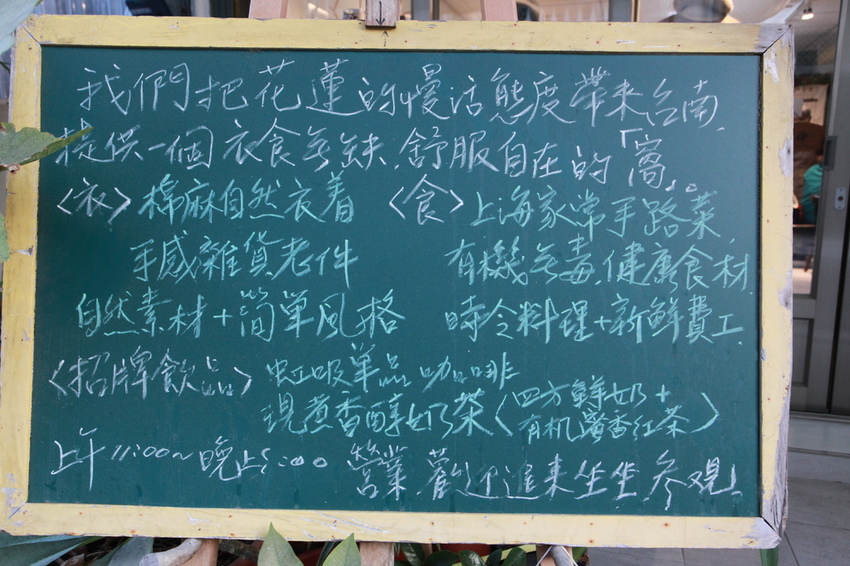 我們把花蓮的慢活態度帶來台南,
提供一個衣食無缺.舒服自在的「窩」。
〈衣〉棉麻自然衣着
手感雜貨老件
自然素材+簡單風格
〈食〉上海家常手路菜,
有機無毒.健康食材
時令料理+新鮮費工
〈招牌飲品〉虹吸單品咖啡
現煮香醇奶茶(四方鮮奶+有机蜜香紅茶)
上午11:00~晚上:00 營業.歡迎進來坐坐.參觀!